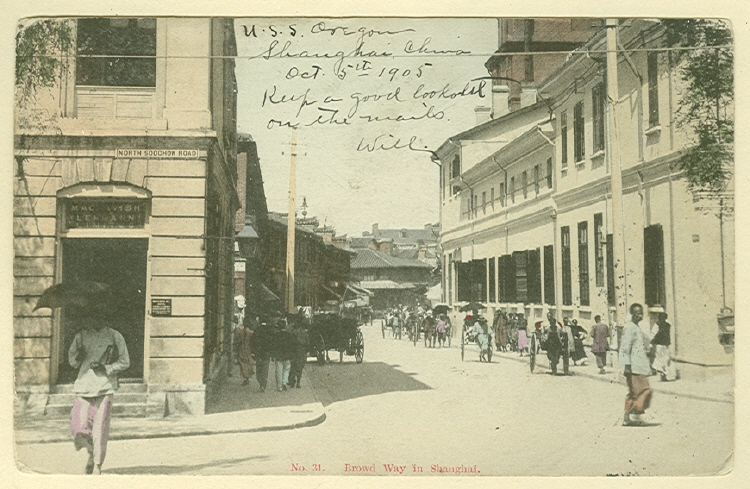 U.S.S. Oregon
Shanghai, China
Oct. 5th 1905
Keep a good lookout
on the mails.
Will.
NORTH SOOCHOW ROAD
No. 31. Browd Way in Shanghai.